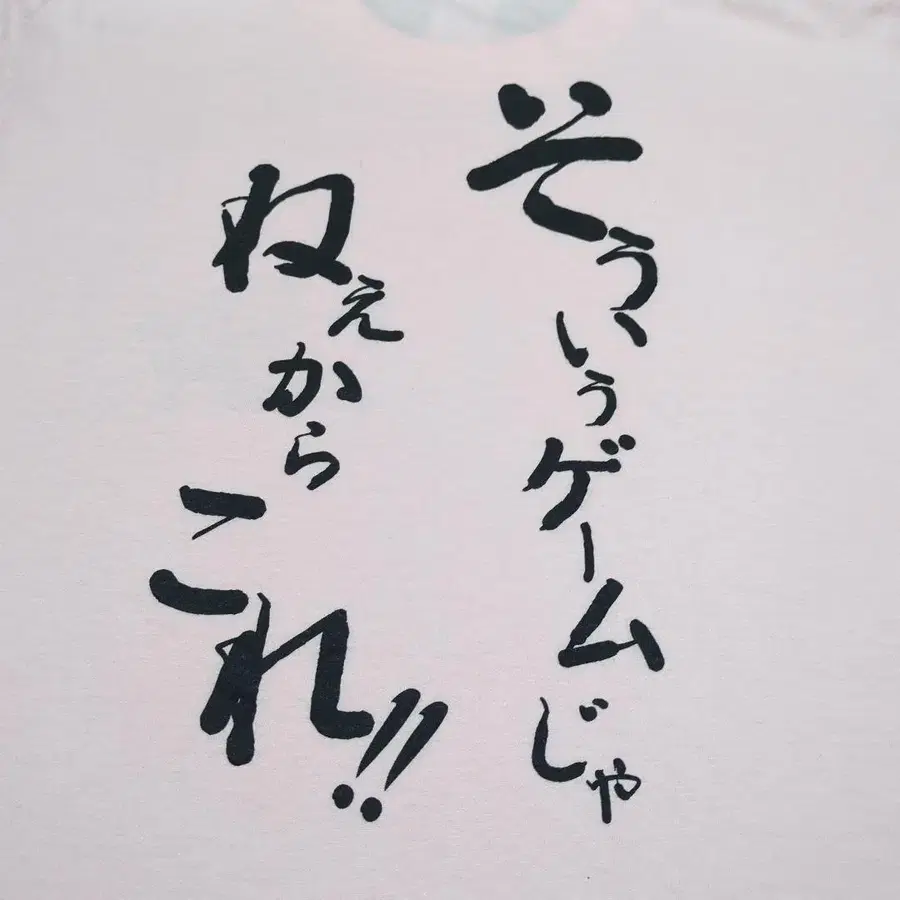 そういうゲームじゃ
ねぇからこれ!!